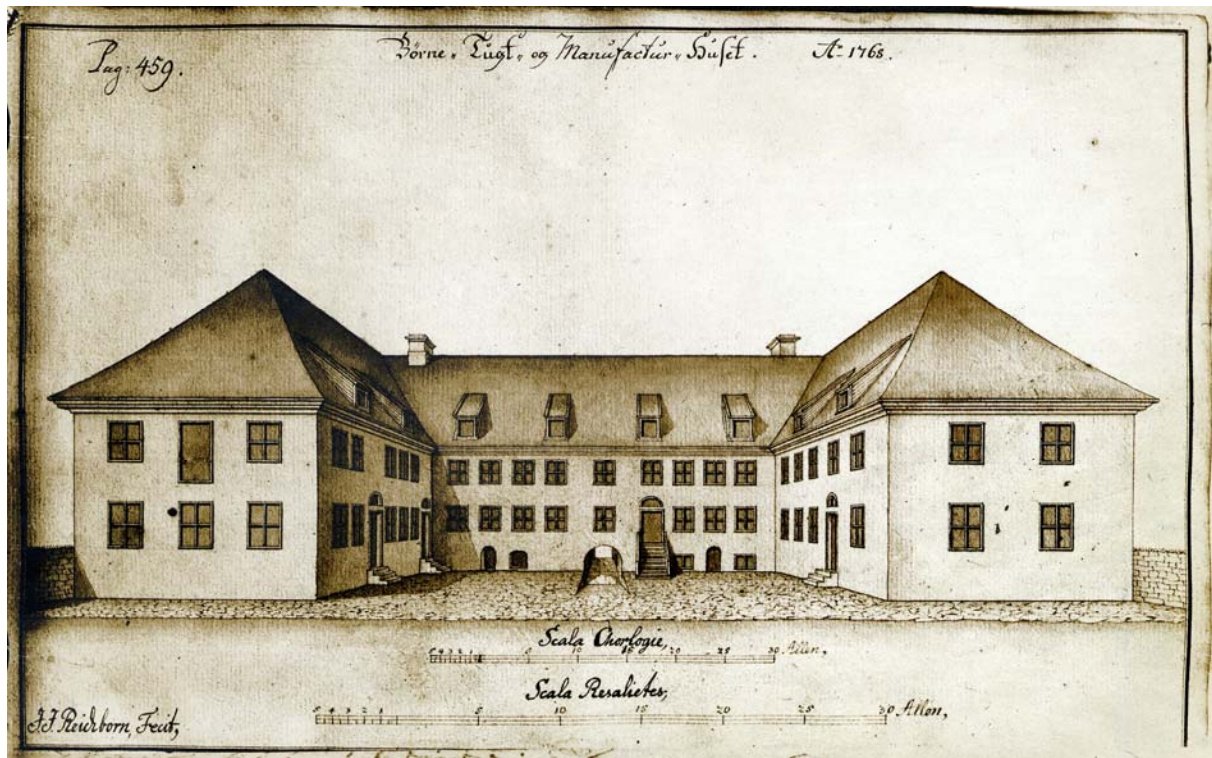 Pag: 459.
Börne„ Tugt„ og Manufactur„ Huset. A͞o 1768.
Scala Chorlogie,
5 4 3 2 1 5 10 15 20 25 30 Allen.
Scala Resalietes,
5 4 3 2 1 5 10 15 20 25 30 Allen,
J.J. Reichborn, Fecit,